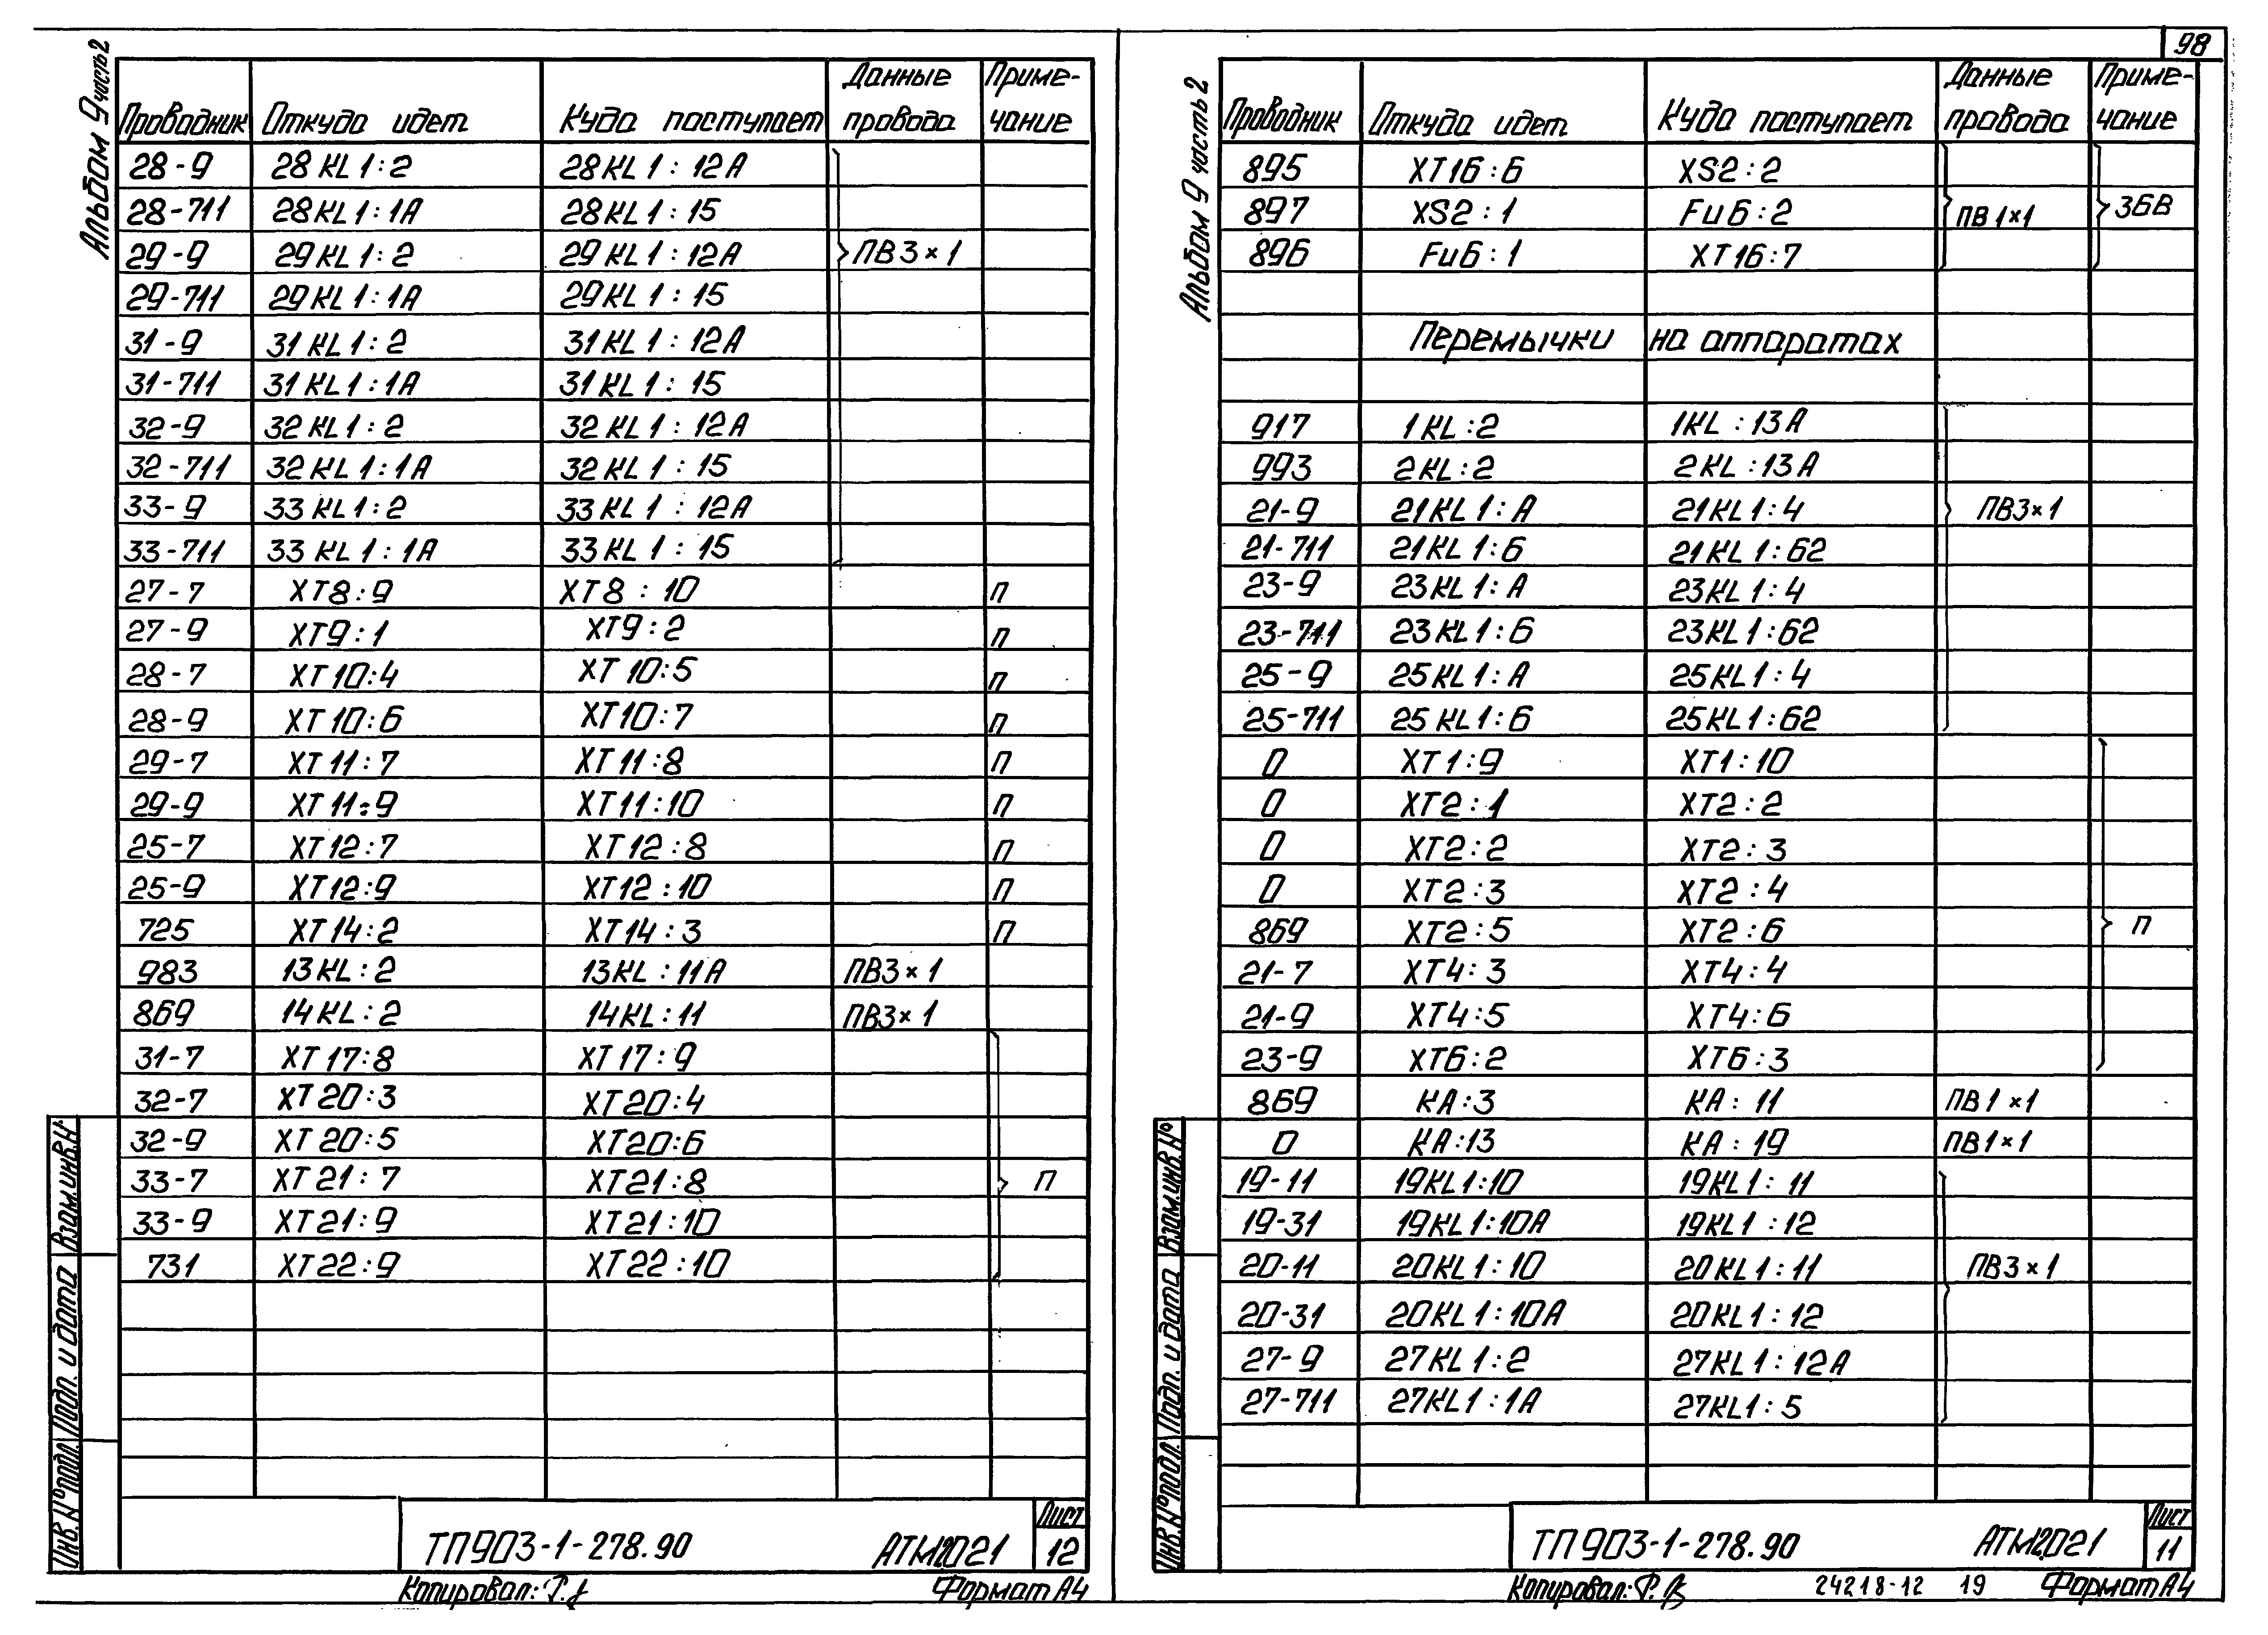 98
Альбом 9 часть 2
Проводник Откуда идет Куда поступает Данные провода Приме-чание
28-9 28KL1:2 28KL1:12А
28-711 28KL1:1А 28KL1:15
29-9 29KL1:2 29KL1:12А ПВ3×1
29-711 29KL1:1А 29KL1:15
31-9 31KL1:2 31KL1:12А
31-711 31KL1:1А 31KL1:15
32-9 32KL1:2 32KL1:12А
32-711 32KL1:1А 32KL1:15
33-9 33KL1:2 33KL1:12А
33-711 33KL1:1А 33KL1:15
27-7 XT8:9 XT8:10 п
27-9 XT9:1 XT9:2 п
28-7 XT10:4 XT10:5 п
28-9 XT10:6 XT10:7 п
29-7 XT11:7 XT11:8 п
29-9 XT11:9 XT11:10 п
25-7 XT12:7 XT12:8 п
25-9 XT12:9 XT12:10 п
725 XT14:2 XT14:3 п
983 13KL:2 13KL:11А ПВ3×1
869 14KL:2 14KL:11 ПВ3×1
31-7 XT17:8 XT17:9
32-7 XT20:3 XT20:4
32-9 XT20:5 XT20:6
33-7 XT21:7 XT21:8 п
33-9 XT21:9 XT21:10
731 XT22:9 XT22:10
Взам.инв.№
Подп. и дата
Инв.№подл.
ТП903-1-278.90 АТМ12021 Лист 12
Копировал: Формат А4
Альбом 9 часть 2
Проводник Откуда идет Куда поступает Данные провода Приме-чание
895 XT16:6 XS2:2
897 XS2:1 Fu6:2 ПВ1×1 36В
896 Fu6:1 XT16:7
Перемычки на аппаратах
917 1KL:2 1KL:13А
993 2KL:2 2KL:13А
21-9 21KL1:А 21KL1:4 ПВ3×1
21-711 21KL1:6 21KL1:62
23-9 23KL1:А 23KL1:4
23-711 23KL1:6 23KL1:62
25-9 25KL1:А 25KL1:4
25-711 25KL1:6 25KL1:62
0 XT1:9 XT1:10
0 XT2:1 XT2:2
0 XT2:2 XT2:3
0 XT2:3 XT2:4
869 XT2:5 XT2:6 п
21-7 XT4:3 XT4:4
21-9 XT4:5 XT4:6
23-9 XT6:2 XT6:3
869 КА:3 КА:11 ПВ1×1
0 КА:13 КА:19 ПВ1×1
19-11 19KL1:10 19KL1:11
19-31 19KL1:10А 19KL1:12
20-11 20KL1:10 20KL1:11 ПВ3×1
20-31 20KL1:10А 20KL1:12
27-9 27KL1:2 27KL1:12А
27-711 27KL1:1А 27KL1:5
Взам.инв.№
Подп. и дата
Инв.№подл.
ТП903-1-278.90 АТМ12021 Лист 11
Копировал: 24218-12 19 Формат А4